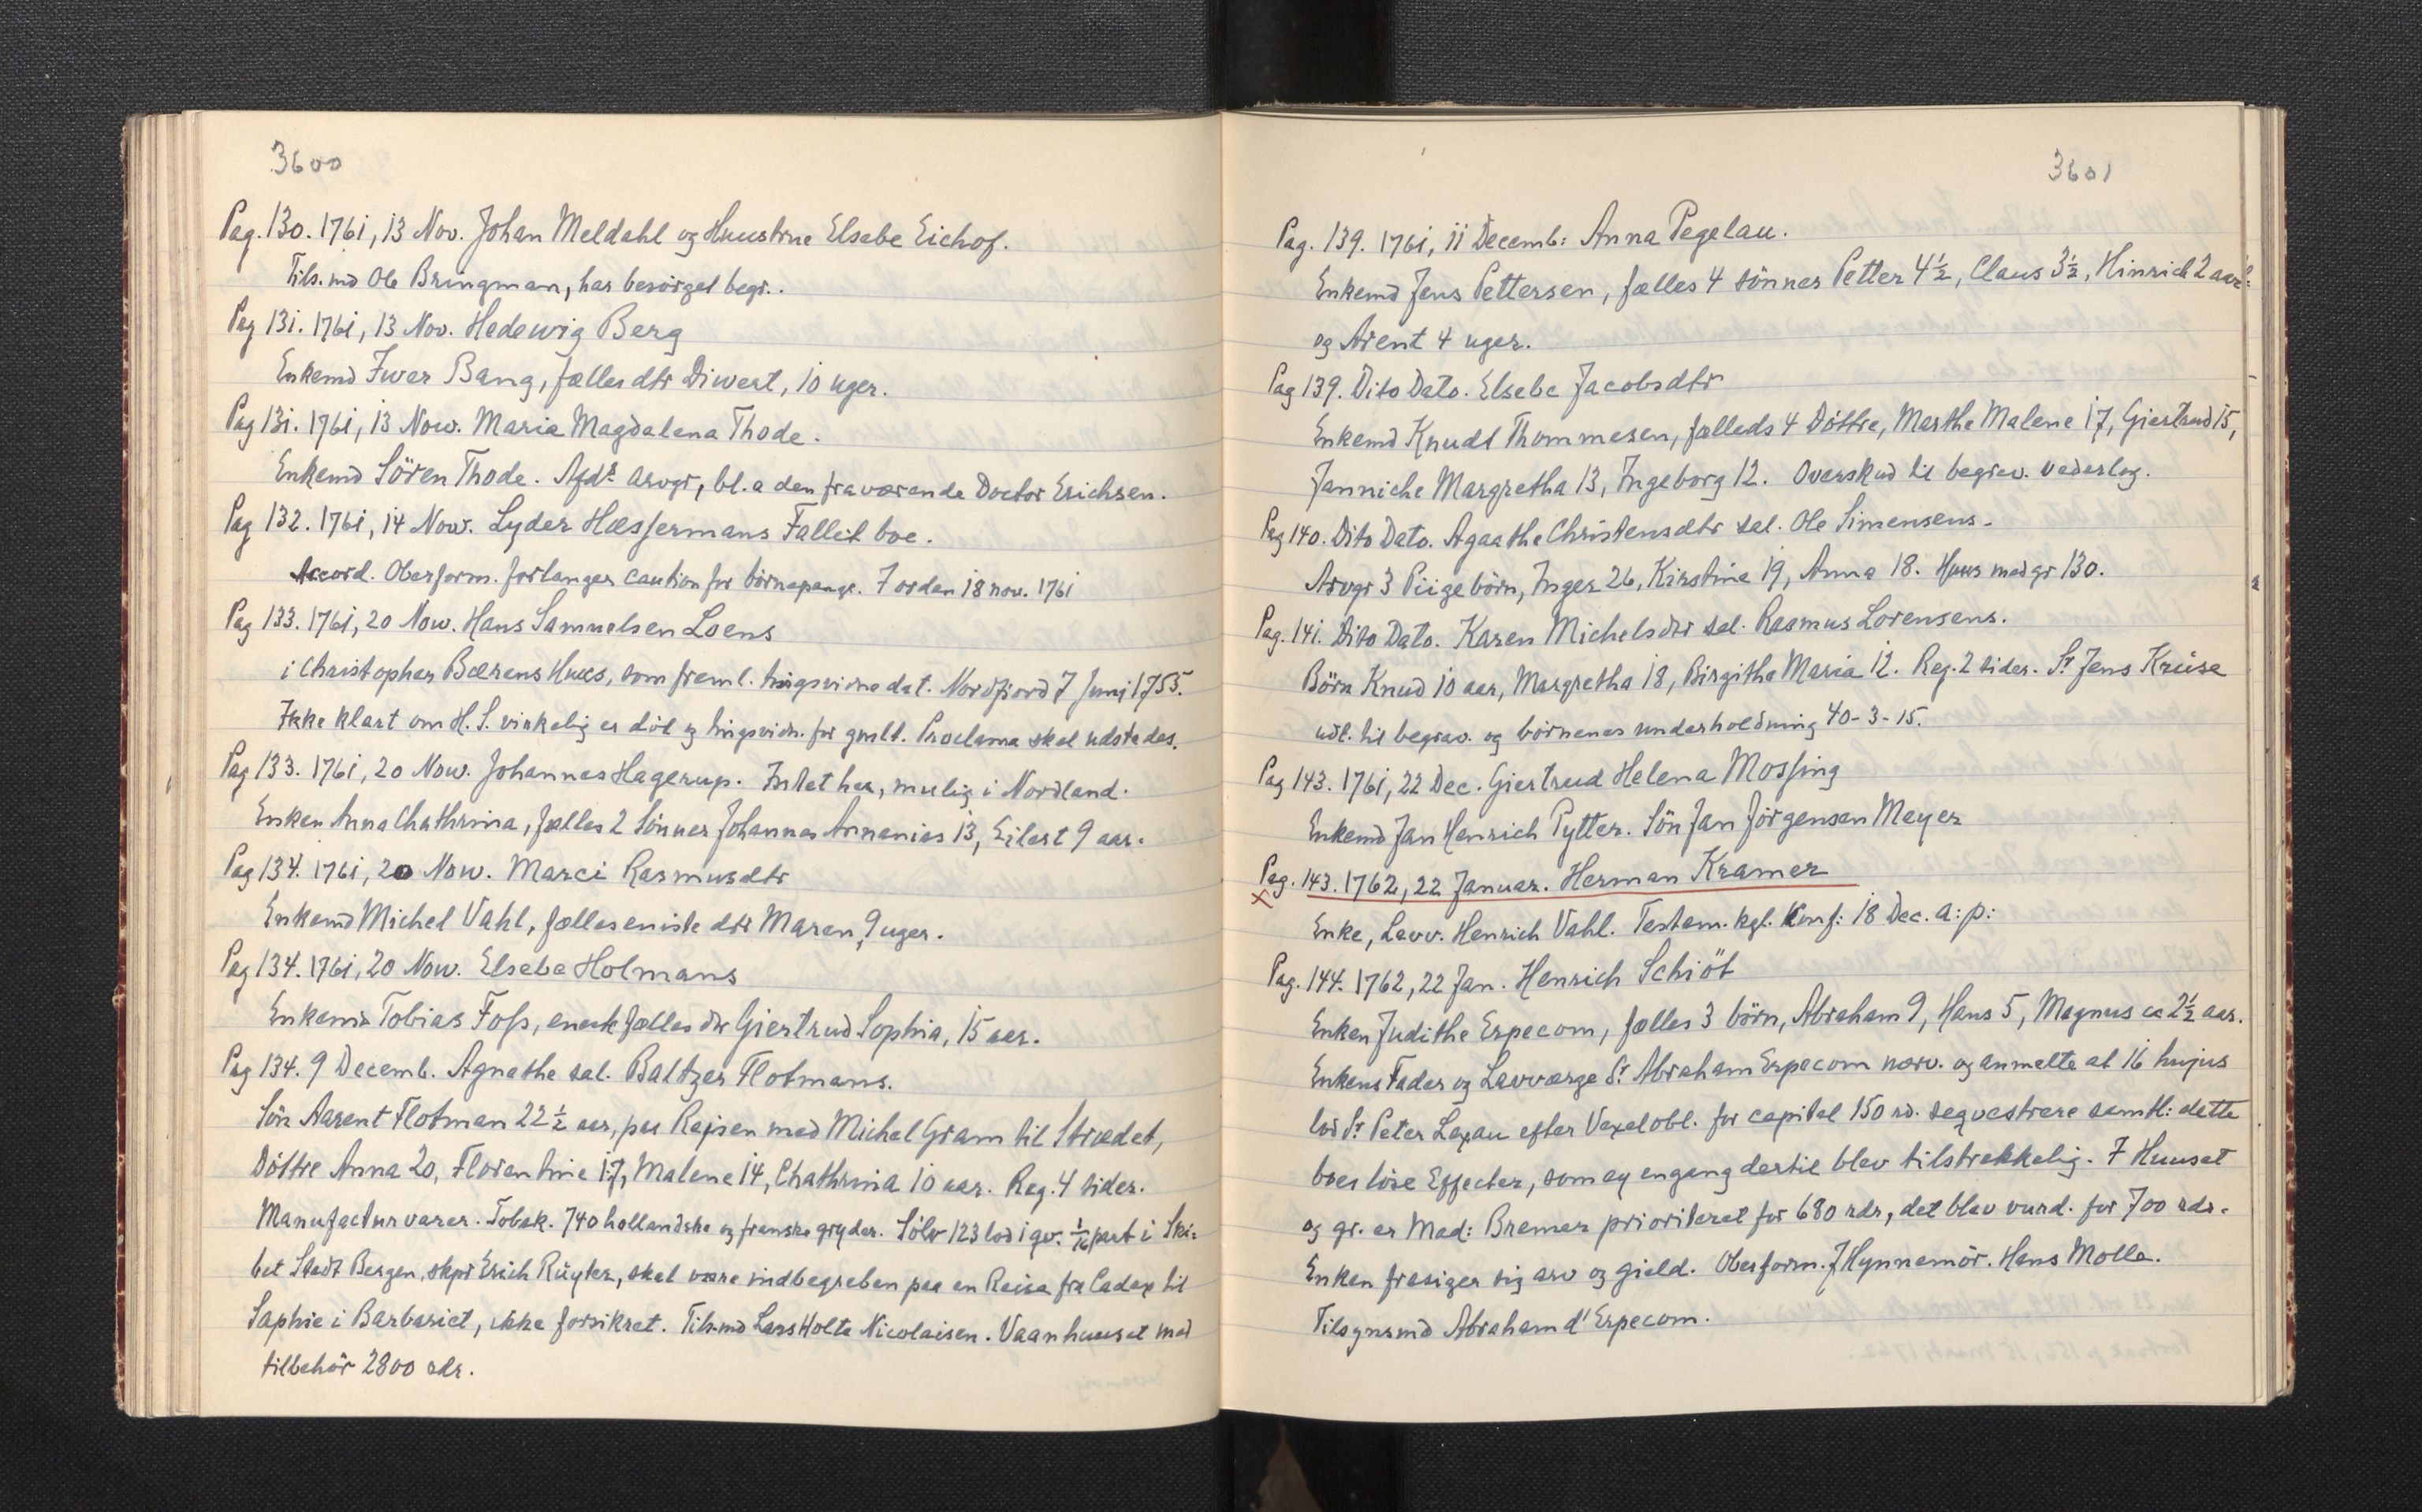 3600
Pag. 130. 1761, 13 Nov. Johan Meldahl og Huustrue Elsebe Eichof.
Tils.md Ole Bringman, har besörget begr..
Pag 131. 1761, 13 Nov. Hedewig Berg
Enkemd Iwer Bang, fælles dtr Diwert, 10 uger.
Pag 131. 1761, 13 Now. Maria Magdalena Thode.
Enkemd Sören Thode. Afdr arvgr, bl.a den fraværende Doctor Erichsen.
Pag 132. 1761, 14 Now. Lyder Hæssermans Fallit boe.
Accord. Oberform. forlanger caution for börnepenge. 7 orden 18 nov. 1761
Pag 133. 1761, 20 Now. Hans Samuelsen Loens
i Christopher Bærens Huus, som freml. tingsvidne dat. Nordfiord 7 Junj 1755.
Ikke klart om H.S. virkelig er död og tingsvidn. for gmlt. Proclama skal udstedes.
Pag 133. 1761, 20 Now. Johannes Hagerup. Intet her, mulig i Nordland.
Enken Anna Chathrina, fælles 2 Sönner Johannes Annanias 13, Eilert 9 aar.
Pag 134. 1761, 20 Now. Marci Rasmusdtr
Enkemd Michel Vahl, fælles eniste dtr Maren, 9 uger.
Pag 134. 1761, 20 Now. Elsebe Holmans
Enkemd Tobias Foss, eneste fælles dtr Giertrud Sophia, 15 aar.
Pag 134. 9 Decemb. Agnethe sal. Baltzer Flotmans.
Sön Aarent Flotman 22½ aar, paa Rejsen med Michel Gram til Strædet,
Döttre Anna 20, Florentine 17, Malene 14, Chathrina 10 aar. Reg. 4 sider.
Manufacturvarer. Tobak. 740 hollandske og franske gryder. Sölv 123 lod 1 qv. 1/16 part i Ski-
bet Stadt Bergen, skpr Erich Rüyter, skal være indbegreben paa en Reise fra Cadex til
Saphie i Barbariet, ikke forsikret. Tils.md Lars Holte Nicolaisen. Vaanhuuset med
tilbehör 2800 rdr.
3601
Pag. 139. 1761, 11 Decemb: Anna Pegelau.
Enkemd Jens Pettersen, fælles 4 sönner Petter 4½, Claus 3½, Hinrich 2 aar
og Arent 4 uger.
Pag 139. Dito Dato. Elsebe Jacobsdtr
Enkemd Knudt Thommesen, fælleds 4 Döttre, Marthe Malene 17, Giertrud 15,
Janniche Margretha 13, Ingeborg 12. Overskud til begrav. vederlag.
Pag 140. Dito Dato. Agaathe Christensdtr sal. Ole Simensens.
Arvgr 3 Piigebörn, Inger 26, Kirstine 19, Anna 18. Huus med gr 130.
Pag. 141. Dito Dato. Karen Michelsdtr sal. Rasmus Lorensens.
Börn Knud 10 aar, Margretha 18, Birgitha Maria 12. Reg. 2 sider. Sr Jens Krüse
udl. til begrav. og börnenes underholdning 40-3-15.
Pag 143. 1761, 22 Dec. Giertrud Helena Mossing
Enkemd Jan Henrich Pytter. Sön Jan Jörgensen Meyer
x Pag. 143. 1762, 22 Januar. Herman Kramer
Enke, Lavv. Henrich Vahl. Testam. kgl. Konf: 18 Dec. a:p:
Pag. 144. 1762, 22 Jan. Henrich Schiöt
Enken Judithe Erpecom, fælles 3 börn, Abraham 9, Hans 5, Magnus ca 2½ aar.
Enkens Fader og Lavværge Sr Abraham Erpecom nærv. og anmelte at 16 hujus
lod Sr Peter Lexau efter Vexelobl. for capital 150 rd. seqvestrere samtl: dette
boes löse Effecter, som ey engang dertil blev tilstrekkelig. I Huuset
og gr. er Mad: Bremer prioriteret for 680 rdr, det blev vurd. for 700 rdr.
Enken frasiger sig arv og gield. Oberform. J Hynnemör. Hans Molle.
Tilsynsmd Abraham d'Erpecom.